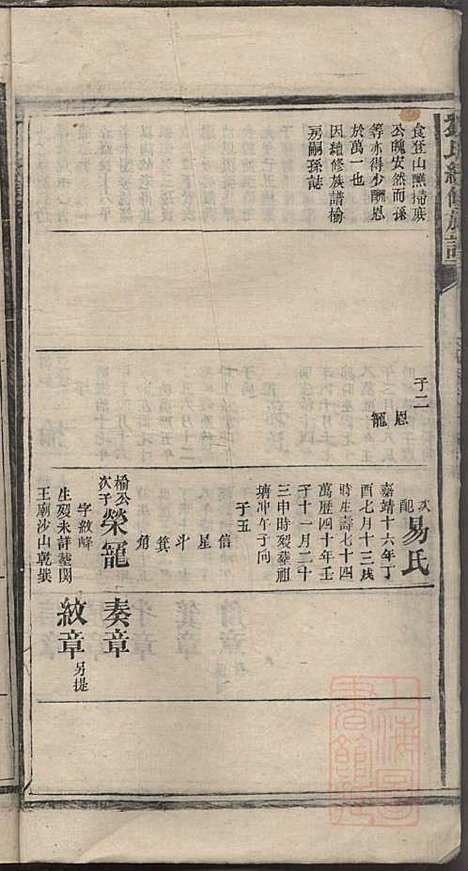 劉氏續修族譜
食登山醮掃庶
公魄安然而孫
等亦得少酬恩
於萬一也
因續修族譜榆
房嗣孫誌
子二
恩
寵
次配
易氏
嘉靖十六年丁
酉七月十三戌
時生壽七十四
萬歷四十年壬
子十一月二十
三申時歿葬祖
塘冲午子向
子五
信
星
斗
箕
角
榆公次子
榮寵
字敘峰
生歿未詳墓関
王廟沙山乾巽
奏章
紋章
另提
上海圖書館藏